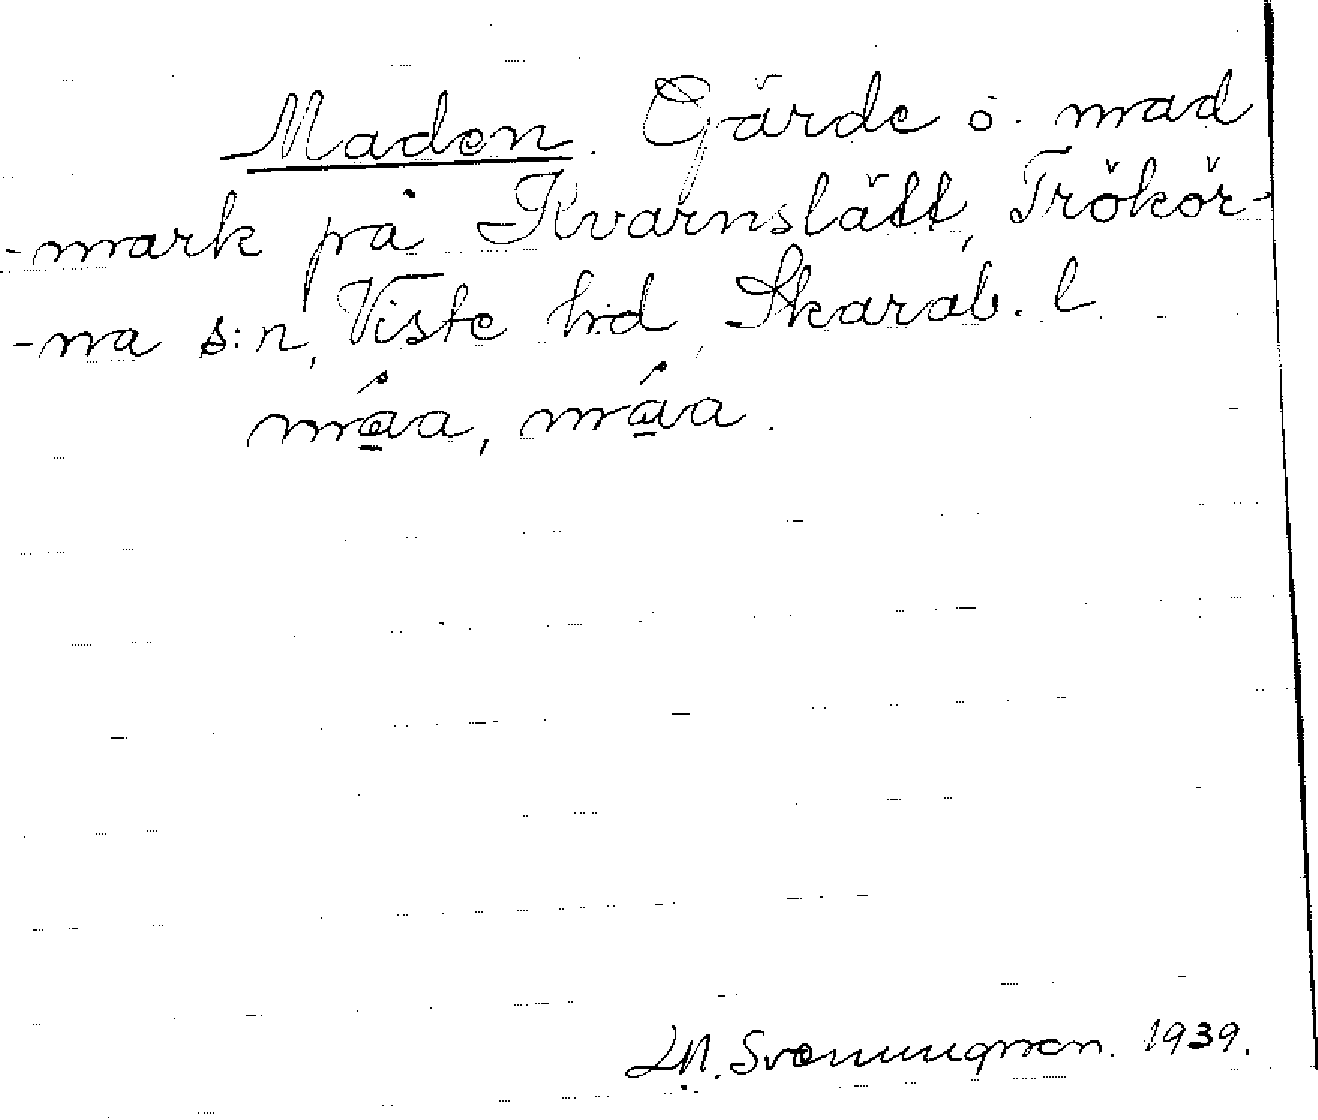 Maden. Gärde o. mad
-mark på Kvarnslätt, Trökör-
-na s:n, Viste hd, Skarab. l
máa, máa.
Svenungsson. 1939.